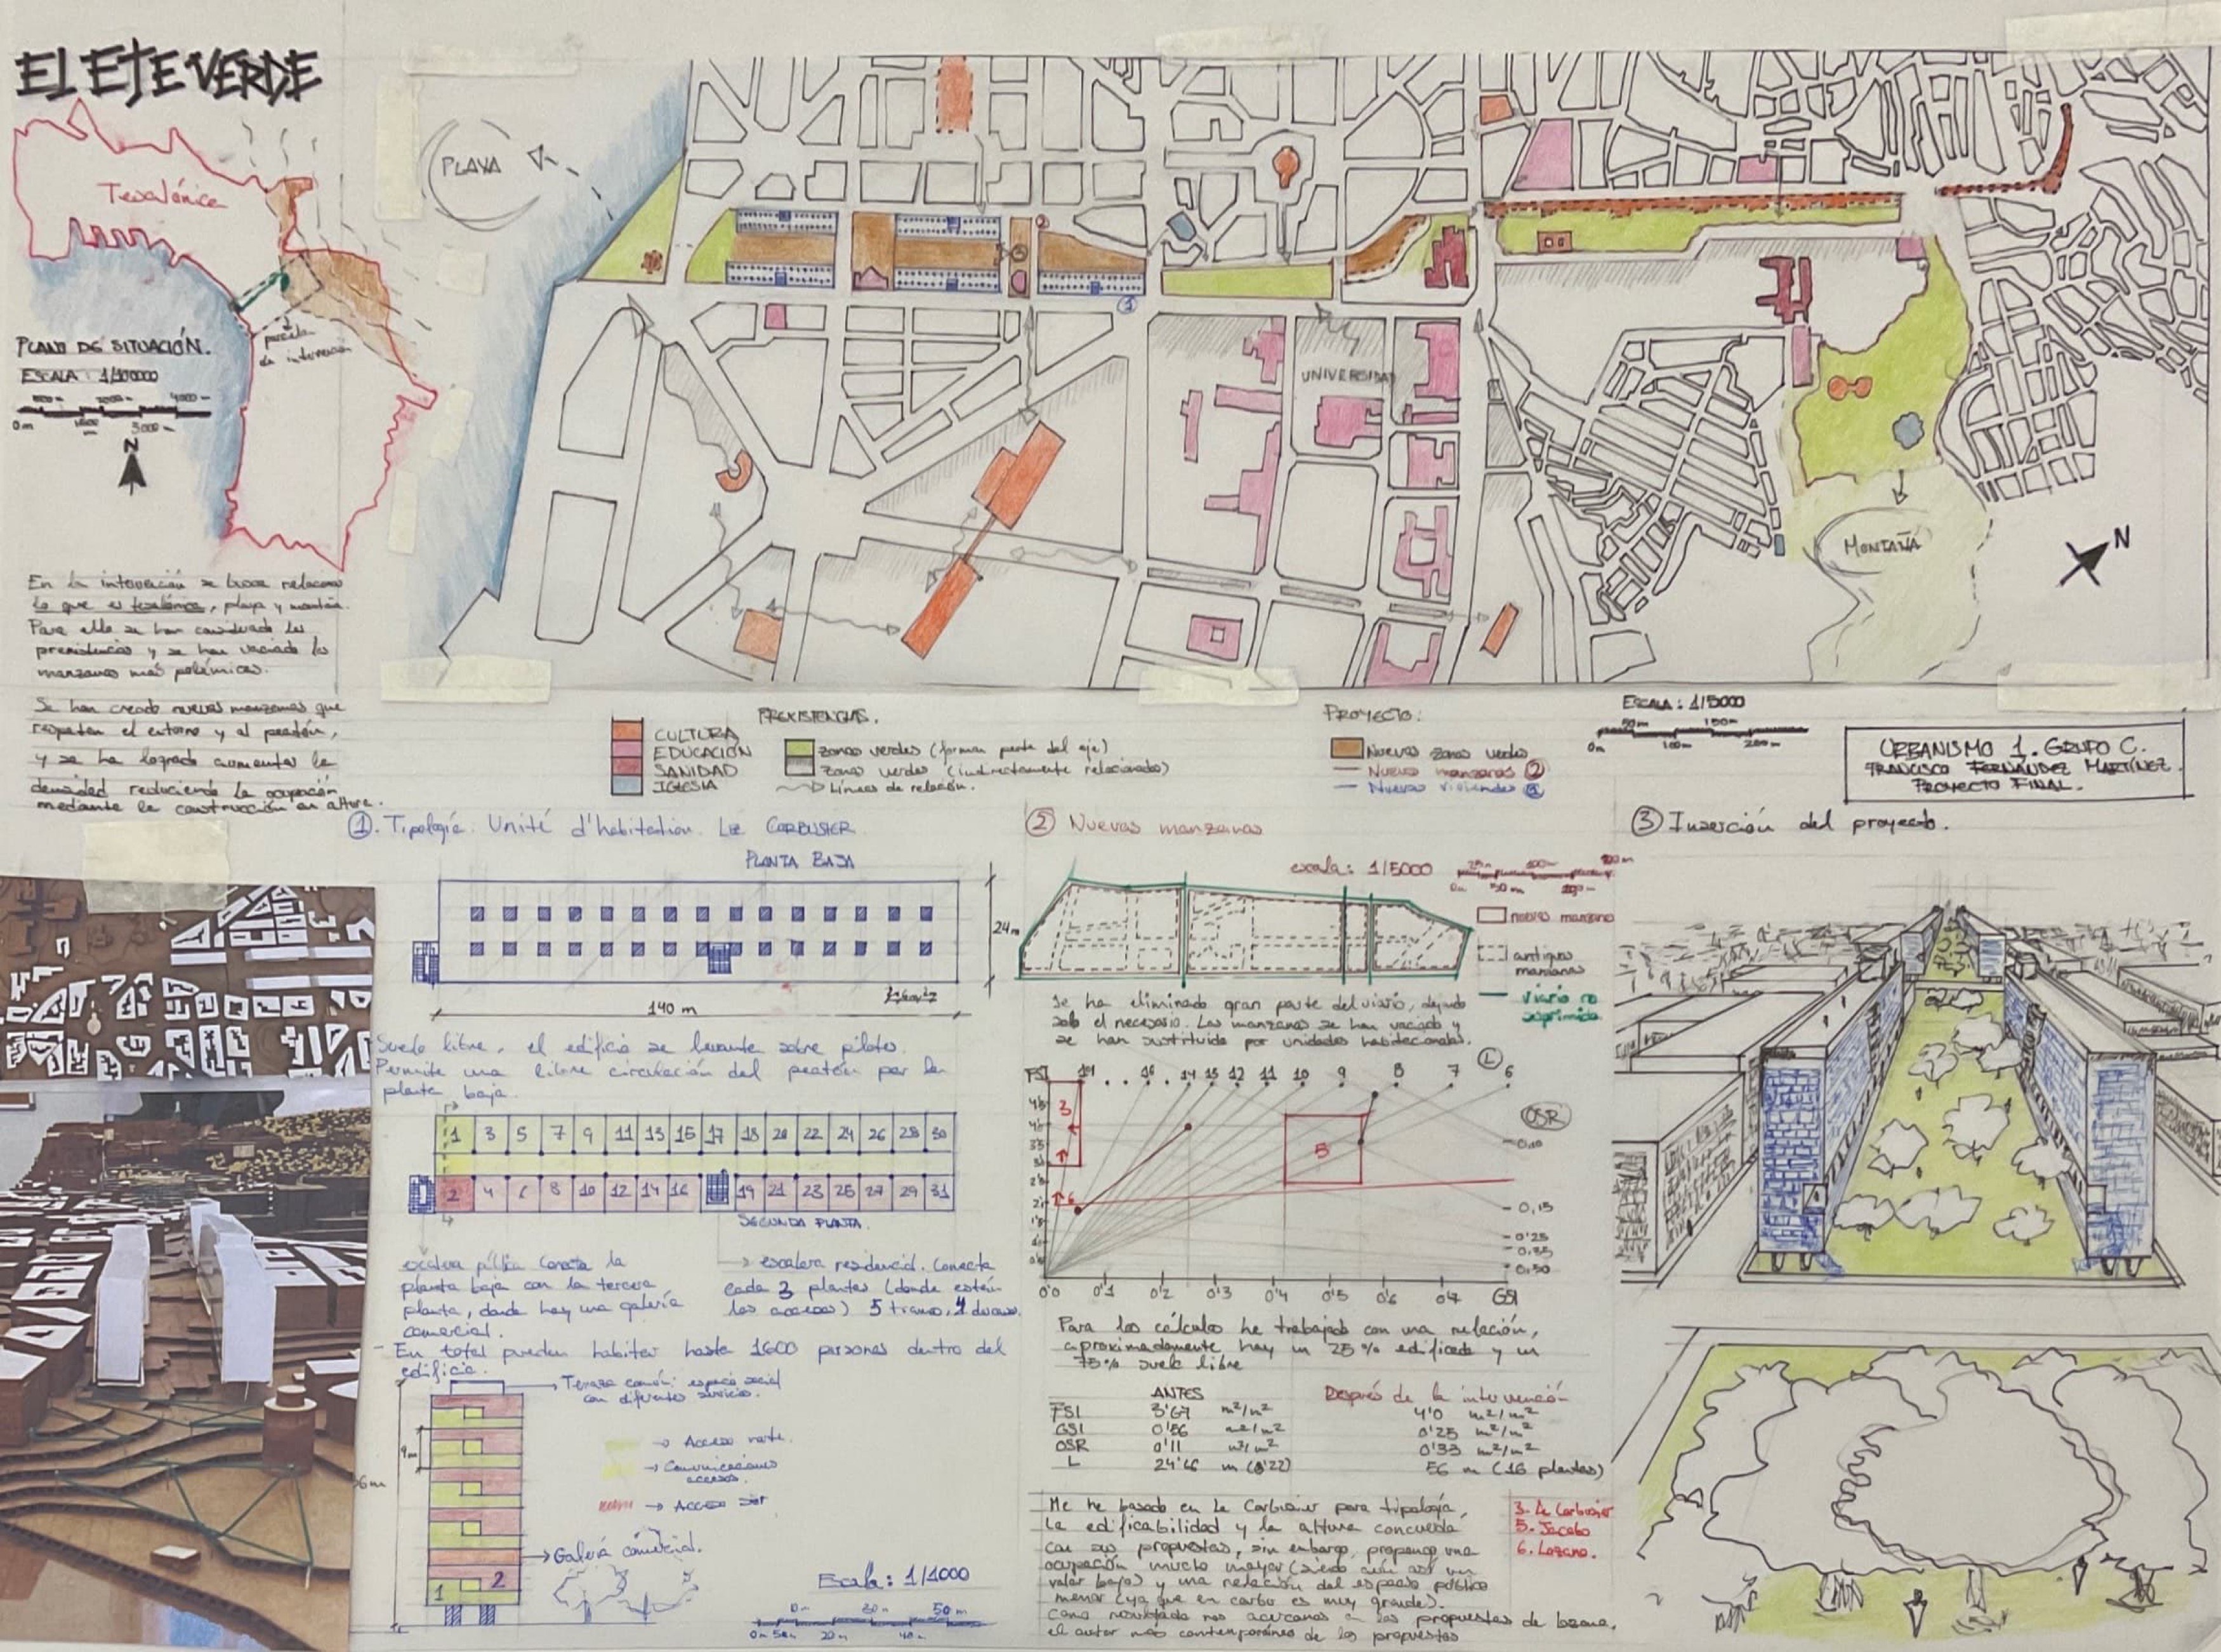 EL EJE VERDE
Tesalónica
parcela
de intervención
PLANO DE SITUACIÓN.
ESCALA: 1/100000
0m
3000 m
N
PLAYA
UNIVERSIDAD
MONTAÑA
N
En la intervención se busca relacionar
lo que es tesalónica, playa y montaña.
Para ello se han considerado las
preexistencias y se han vaciado las
manzanas más polémicas.
Se han creado nuevas manzanas que
respetan el entorno y al peatón,
y se ha logrado aumentar la
densidad reduciendo la ocupación
mediante la construcción en altura.
PREXISTENCIAS.
CULTURA
EDUCACIÓN
SANIDAD
IGLESIA
zonas verdes (forman parte del eje)
zonas verdes (indirectamente relacionados)
Líneas de relación.
PROYECTO:
Nuevas zonas verdes
Nuevas manzanas 2
Nuevas viviendas 1
ESCALA: 1/5000
50m 150m
0m 100m 200m
URBANISMO 1. GRUPO C.
FRANCISCO FERNÁNDEZ MARTÍNEZ.
PROYECTO FINAL.
1. Tipología. Unité d'habitation. LE CORBUSIER
PLANTA BAJA
24m
140 m
Suelo libre, el edificio se levanta sobre pilotes.
Permite una libre circulación del peatón por la
planta baja.
1 3 5 7 9 11 13 15 17 18 20 22 24 26 28 30
2 4 6 8 10 12 14 16 19 21 23 25 27 29 31
SEGUNDA PLANTA.
escalera pública conecta la
planta baja con la tercera
planta, donde hay una galería
comercial.
escalera residencial. Conecta
cada 3 plantas (donde están
los accesos) 5 tramos,
- En total pueden habitar hasta 1600 personas dentro del
edificio.
Terraza común: espacio social
con diferentes servicios.
9m
56m
Acceso norte.
Comunicaciones
accesos.
Acceso sur
Galería comercial.
1 2
Escala: 1/1000
0m 30m 50m
20m 40m
2 Nuevas manzanas
escala: 1/5000
0m 50m
nueva manzana
antiguas
manzanas
viario no
suprimido
Se ha eliminado gran parte del viario, dejando
solo el necesario. Las manzanas se han vaciado y
se han sustituido por unidades habitacionales.
FSI
14 13 12 11 10 9 8 7 6
L
OSR
3
5
6
0,10
0,15
0'25
0,35
0,50
0'0 0'1 0'2 0'3 0'4 0'5 0'6 0'7 GSI
Para los cálculos he trabajado con una relación,
aproximadamente hay un 25% edificado y un
75% suelo libre
ANTES Después de la intervención
FSI 3'67 m²/m² 4'0 m²/m²
GSI 0'56 m²/m² 0'25 m²/m²
OSR 0'11 m²/m² 0'33 m²/m²
L m 56 m (16 plantas)
Me he basado en Le Corbusier para tipología,
la edificabilidad y la altura concuerda
con sus propuestas, sin embargo, propongo una
ocupación mucho mayor (siendo aún así un
valor bajo) y una relación del espacio público
menor (ya que en corbu es muy grande).
Como resultado nos acercamos a las propuestas de lozano,
el autor más contemporáneo de los propuestos
3. Le Corbusier
5. Jacobo
6. Lozano.
3 Inserción del proyecto.